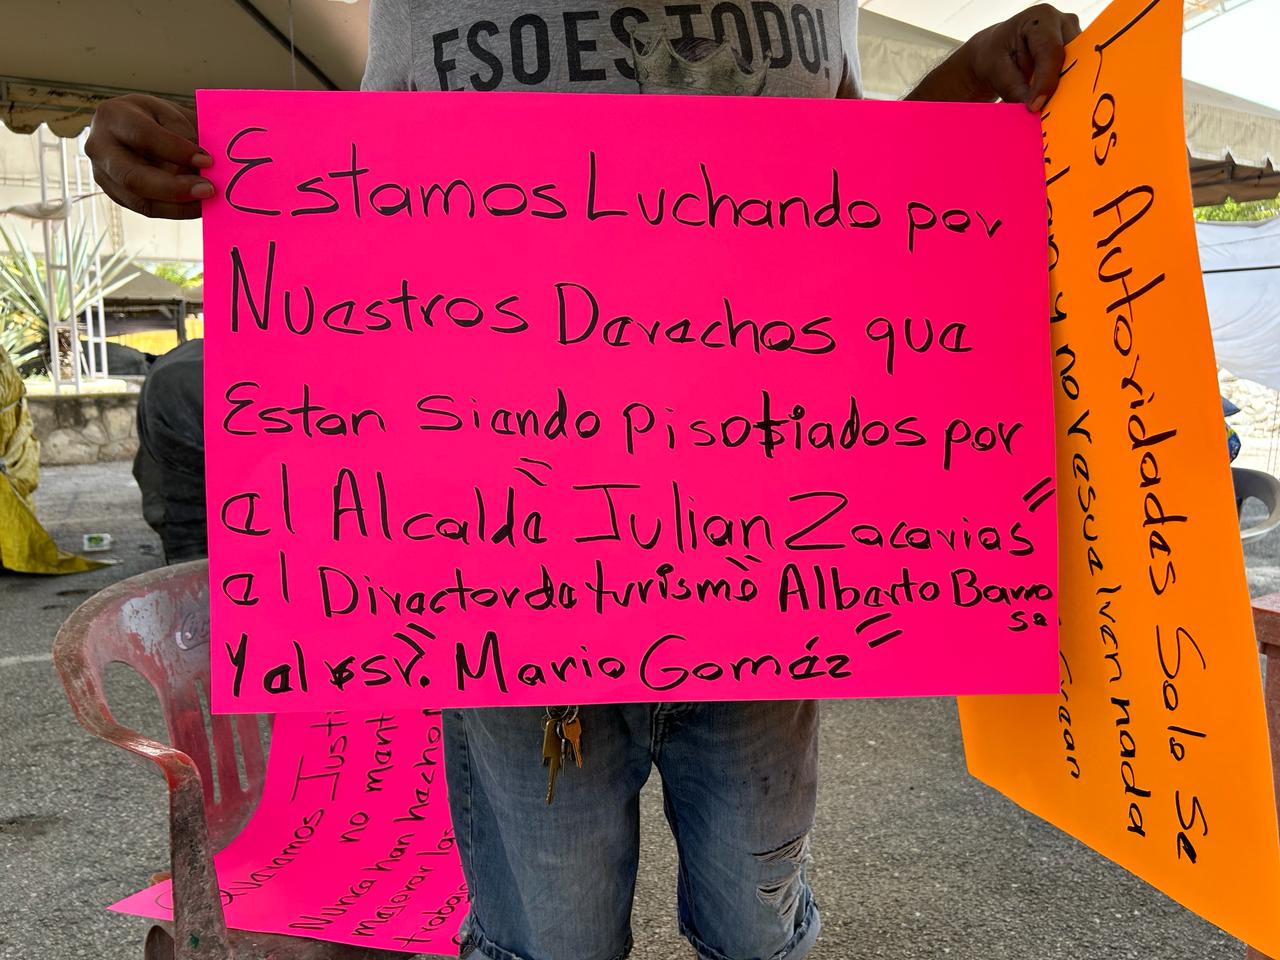 ESO ES TODO!
Estamos Luchando por
Nuestros Derechos que
Estan siendo pisotiados por
el Alcalde "Julian Zacarias"
el Director de turismo "Alberto Barro
sa
Y el sr. "Mario Goméz"
Las Autoridades Solo Se
y no resuelven nada
Queremos Justi
no mant
Nunca han hecho n
mejorar las
trabaj